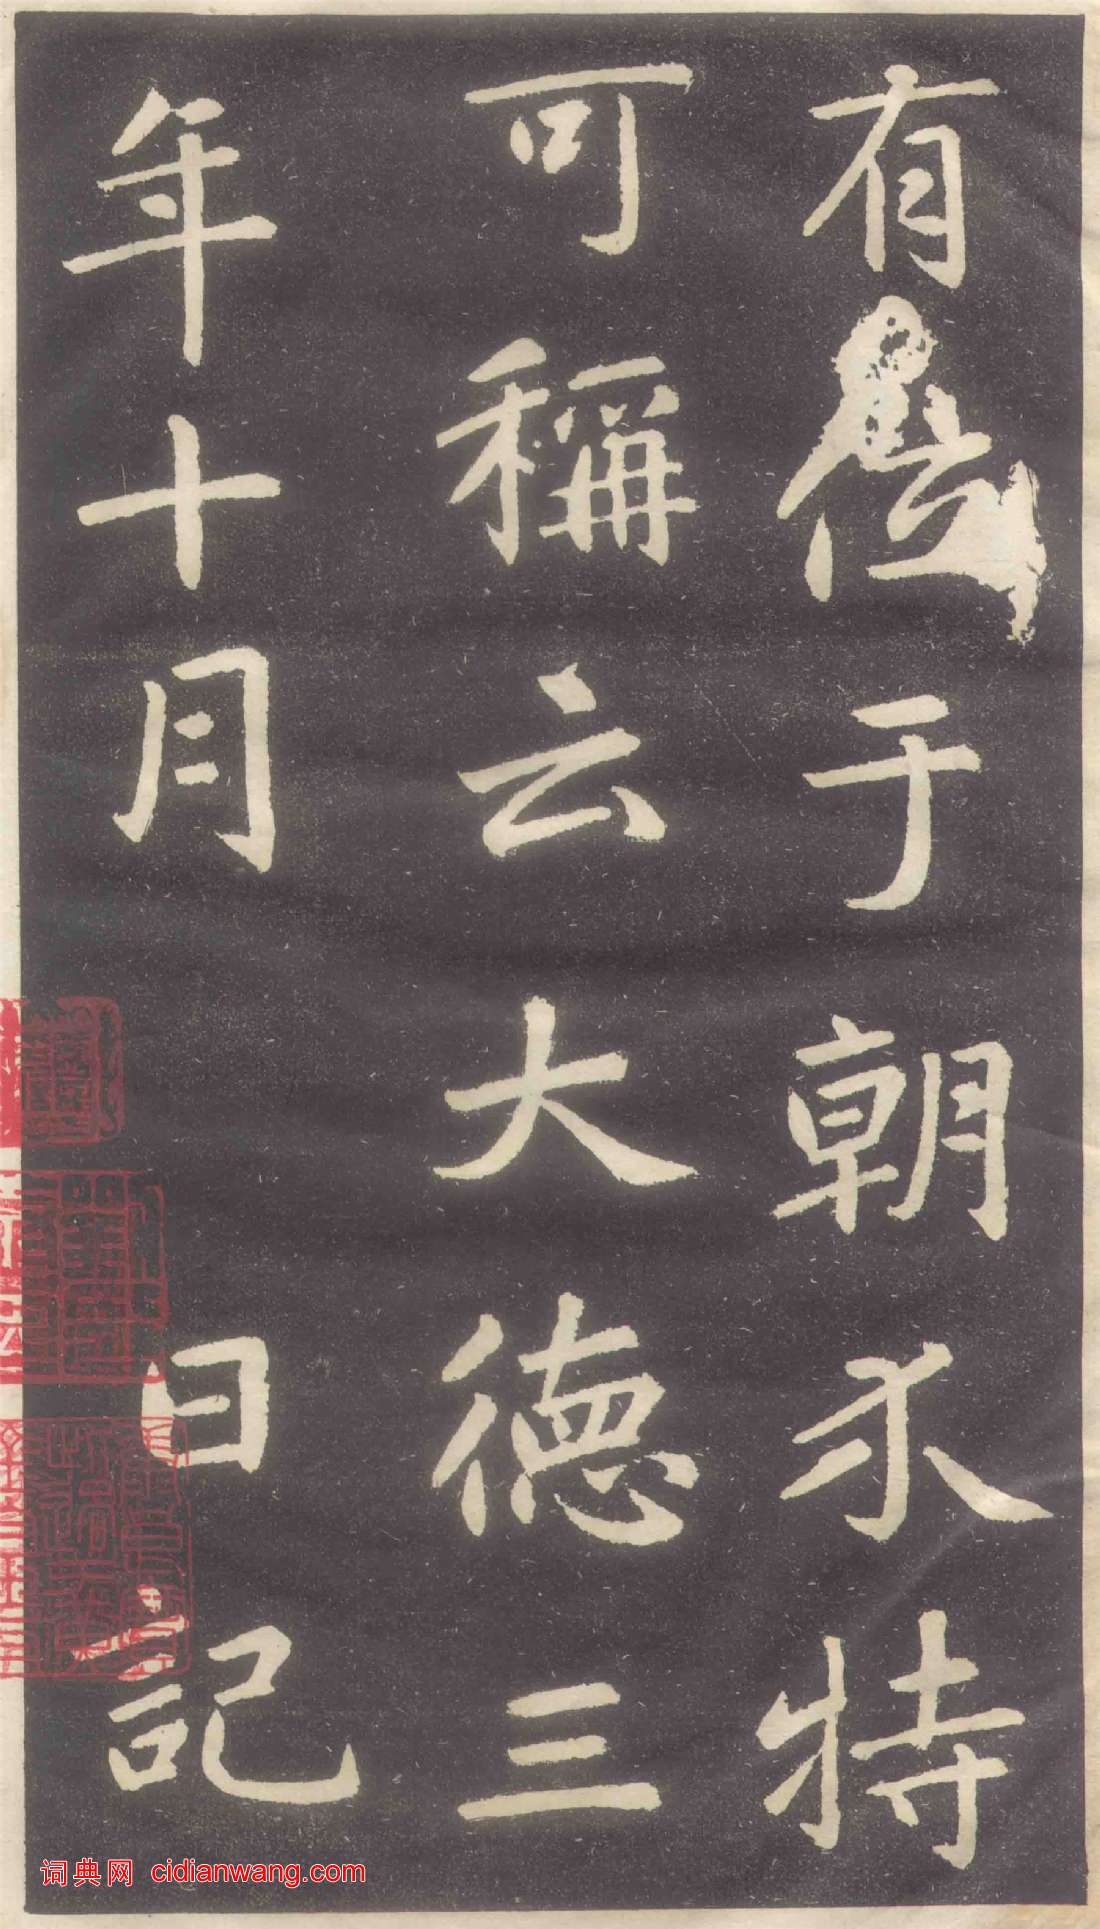 有位于朝不特
可稱云大德三
年十月 日記
词典网 cidianwang.com